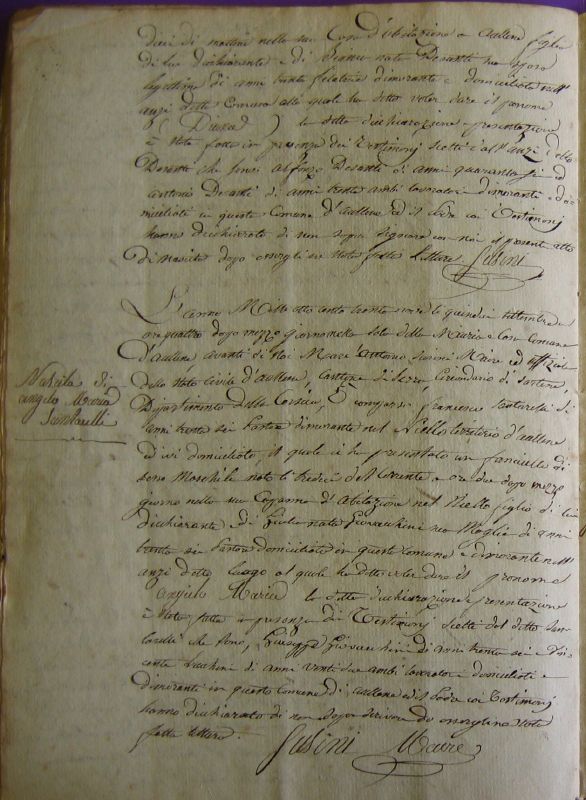 dieci di mattina nella sua Casa d'abitazione a aullene figlia
di lui dichiarante e di Bianca nata Desanti sua sposa
legittima di anni trenta filatera dimorante e domiciliata nell'
anzi detta Comune alla quale ha detto voler dare il pronome
(Diana) la detta dichiarazione e presentazione
è stata fatta in presenza dei Testimonj scelti dall'anzi detto
Desanti che sono alfonzo Desanti di anni quaranta sei ed
antonio Desanti di anni trenta ambi lavoratori dimoranti e do
miciliati in questa Comune d'aullene ed il Padre coi Testimonj
hanno dichiarato di non saper signare con noi il presente atto
di nascita dopo essergliene stata fatta lettura Susini
L'anno Mille otto cento trenta il quindici settembre
ore quattro dopo mezzo giorno nella sala della Mairia e Casa Comune
d'aullene, avanti di Noi Marc'antonio Susini Maire ed offiziale
dello stato Civile d'aullene, Cantone di Serra, Circondario di Sartene
Dipartimento della Corsica, è comparso francesco Santarelli di
anni trenta sei Pastore dimorante nel Niello territorio d'aullene
ed ivi domiciliato, il quale ci ha presentato un fanciullo di
sesso Maschile nato li tredici del Corrente a ore due dopo mezzo
giorno nella sua Capanna d'abitazione nel Niello figlio di lui
dichiarante e di Giulia nata Giovacchini sua Moglie di anni
trenta sei Pastora domiciliata in questa Comune e dimorante nell'
anzi detto luogo al quale ha detto voler dare il pronome
angiulo Maria la detta dichiarazione e presentazione
è stata fatta in presenza dei Testimonj scelti dal detto San
tarelli che sono, Giuseppe Giovacchini di anni trenta sei e Vin
cente Lucchini di anni venti due ambi lavoratori e domiciliati e
dimoranti in questa Comune di aullene ed il Padre coi Testimonj
hanno dichiarato di non saper scrivere dopo essergliene stata
fatta lettura.
Susini Maire
Nascita di
angelo Maria
Santarelli